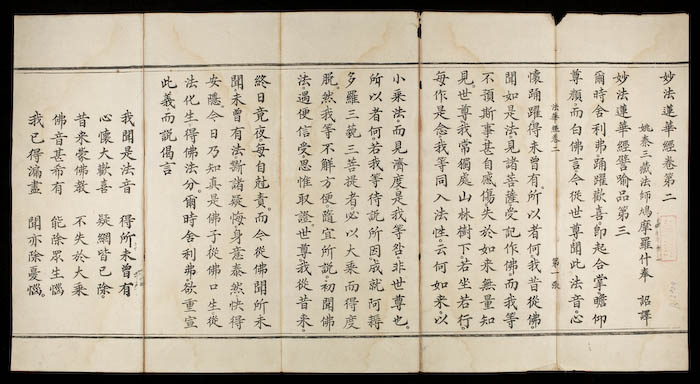 妙法蓮華經卷第二
姚秦三藏法師鳩摩羅什奉 詔譯
妙法蓮華經譬喻品第三
爾時舍利弗踊躍歡喜即起合掌瞻仰
尊顏而白佛言今從世尊聞此法音心
法華經卷二 第一張
懷踊躍得未曾有所以者何我昔從佛
聞如是法見諸菩薩受記作佛而我等
不預斯事甚自感傷失於如來無量知
見世尊我常獨處山林樹下若坐若行
每作是念我等同入法性云何如來以
小乘法而見濟度是我等咎非世尊也。
所以者何若我等待說所因成就阿耨
多羅三藐三菩提者必以大乘而得度
脫。然我等不解方便隨宜所說初聞佛
法。遇便信受思惟取證。世尊我從昔來。
終日竟夜每自尅責而今從佛聞所未
聞未曾有法斷諸疑悔身意泰然快得
安隱今日乃知真是佛子從佛口生從
法化生得佛法分。爾時舍利弗欲重宣
此義而說偈言
我聞是法音 得所未曾有
心懷大歡喜 疑網皆已除
昔來蒙佛教 不失於大乘
佛音甚希有 能除眾生惱
我已得漏盡 聞亦除憂惱